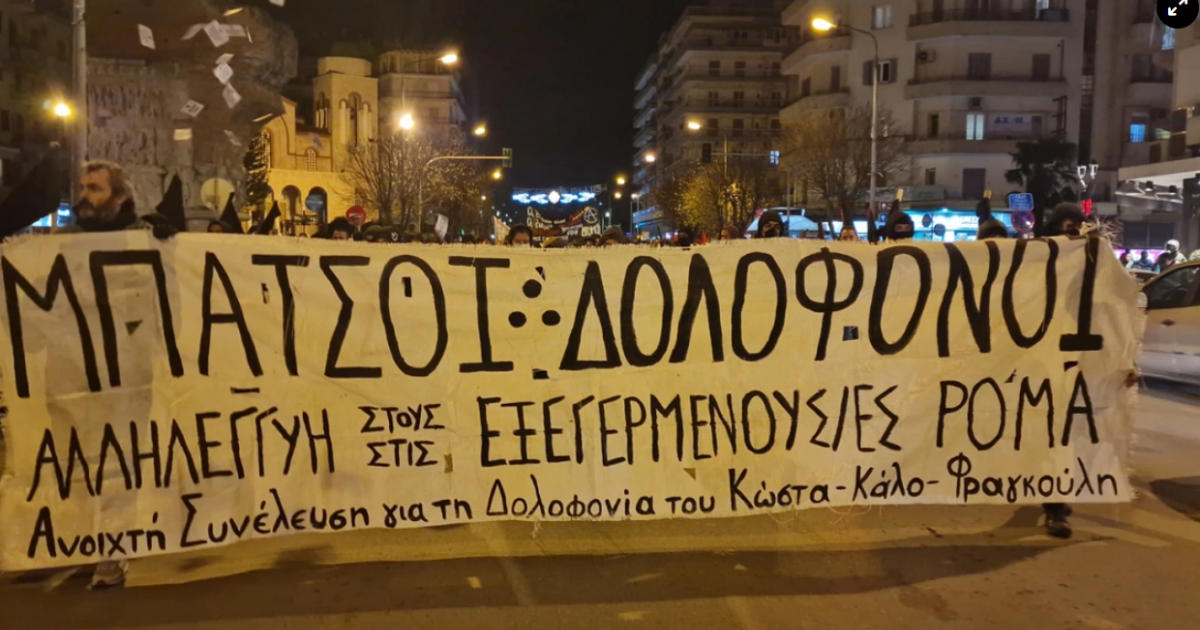 ΜΠΑΤΣΟΙ ∴ ΔΟΛΟΦΟΝΟΙ
ΑΛΛΗΛΕΓΓΥΗ ΣΤΟΥΣ ΣΤΙΣ ΕΞΕΓΕΡΜΕΝΟΥΣ/ΕΣ ΡΟΜΆ
Ανοιχτή Συνέλευση για τη Δολοφονία του Κώστα-Κάλο-Φραγκούλη